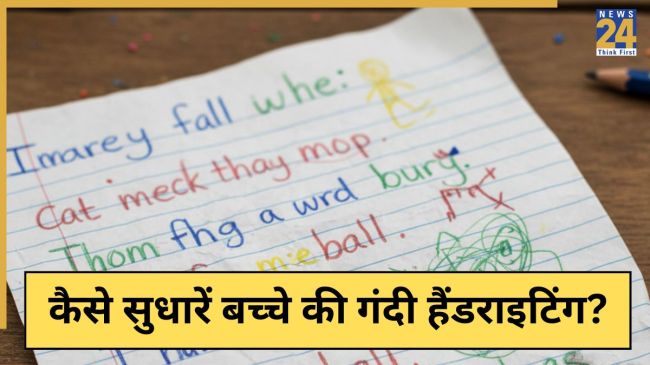 NEWS
24
Think First
Imarey fall whe:
Cat meck thay mop.
Thom fhg a wrd bury.
m:e ball.
कैसे सुधारें बच्चे की गंदी हैंडराइटिंग?